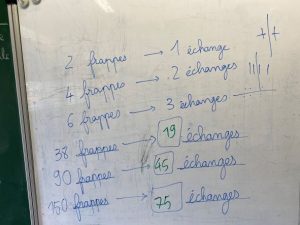 2 frappes → 1 échange
4 frappes → 2 échanges
6 frappes → 3 échanges
38 frappes → 19 échanges
90 frappes → 45 échanges
150 frappes → 75 échanges